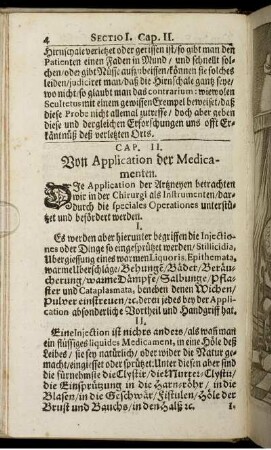 4 SECTIO I. Cap. II.
Hirnschale verletzet oder gerissen ist/ so gibt man den
Patienten einen Faden in Mund / und schnellt sol-
chen/ oder gibt Nüsse auffzubeissen/ können sie solches
leiden/ judiciret man/ daß die Hirnschale gantz sey/
wo nicht/ so glaubt man das contrarium: wiewolen
Scultetus mit einem gewissen Exempel beweiset/ daß
diese Probe nicht allemal zutreffe / doch aber geben
diese und dergleichen Erforschungen uns offt Er-
käntnüß deß verletzten Orts.
CAP. II.
Von Application der Medica-
menten.
DIe Application der Artzneyen betrachten
wir in der Chirurgi als Instrumenten/ dar-
durch die speciales Operationes unterstü-
tzet und befördert werden.
I.
Es werden aber hierunter begriffen die Injectio-
nes oder Dinge so eingesprützet werden/ Stillicidia,
Ubergiessung eines warmen Liquoris, Epithemata,
warme Uberschläge/ Behunge/ Bäder/ Beräu-
cherung/ warme Dämpffe/ Salbunge/ Pfla-
ster und Cataplasmata, beneben denen Wiechen/
Pulver einstreuen/ ꝛc. deren jedes bey der Appli-
cation absonderliche Vortheil und Handgriff hat.
II.
Eine Injection ist nichts anders/ als wañ man
ein flüssiges liquides Medicament, in eine Höle deß
Leibes / sie sey natürlich/ oder wider die Natur ge-
macht/ eingiesset oder sprützet: Unter diesen aber sind
die fürnehmste die Clystir/ die Mutter-Clystir/
die Einsprützung in die Harnröhr/ in die
Blasen/ in die Geschwär/ Fistulen/ Höle der
Brust und Bauchs/ in den Halß ꝛc.
1.